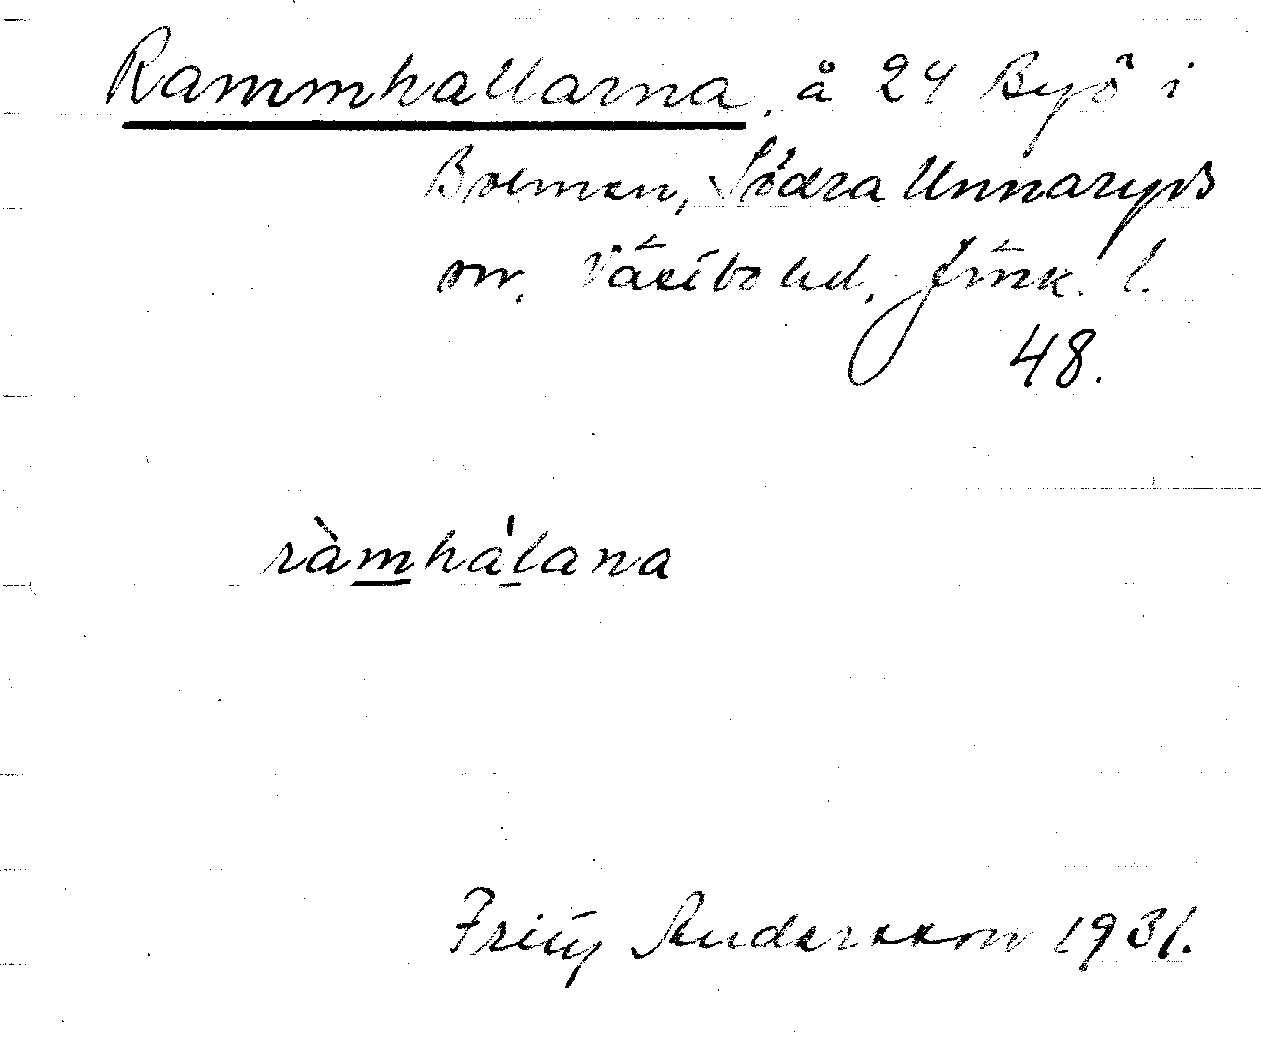 Rammhallarna, å 24 Byö i
Bolmen, Södra Unnaryds
sn. Västbo hd. Jönk. l.
48.
ràmhá'lana
Fritz Andersson 1931.